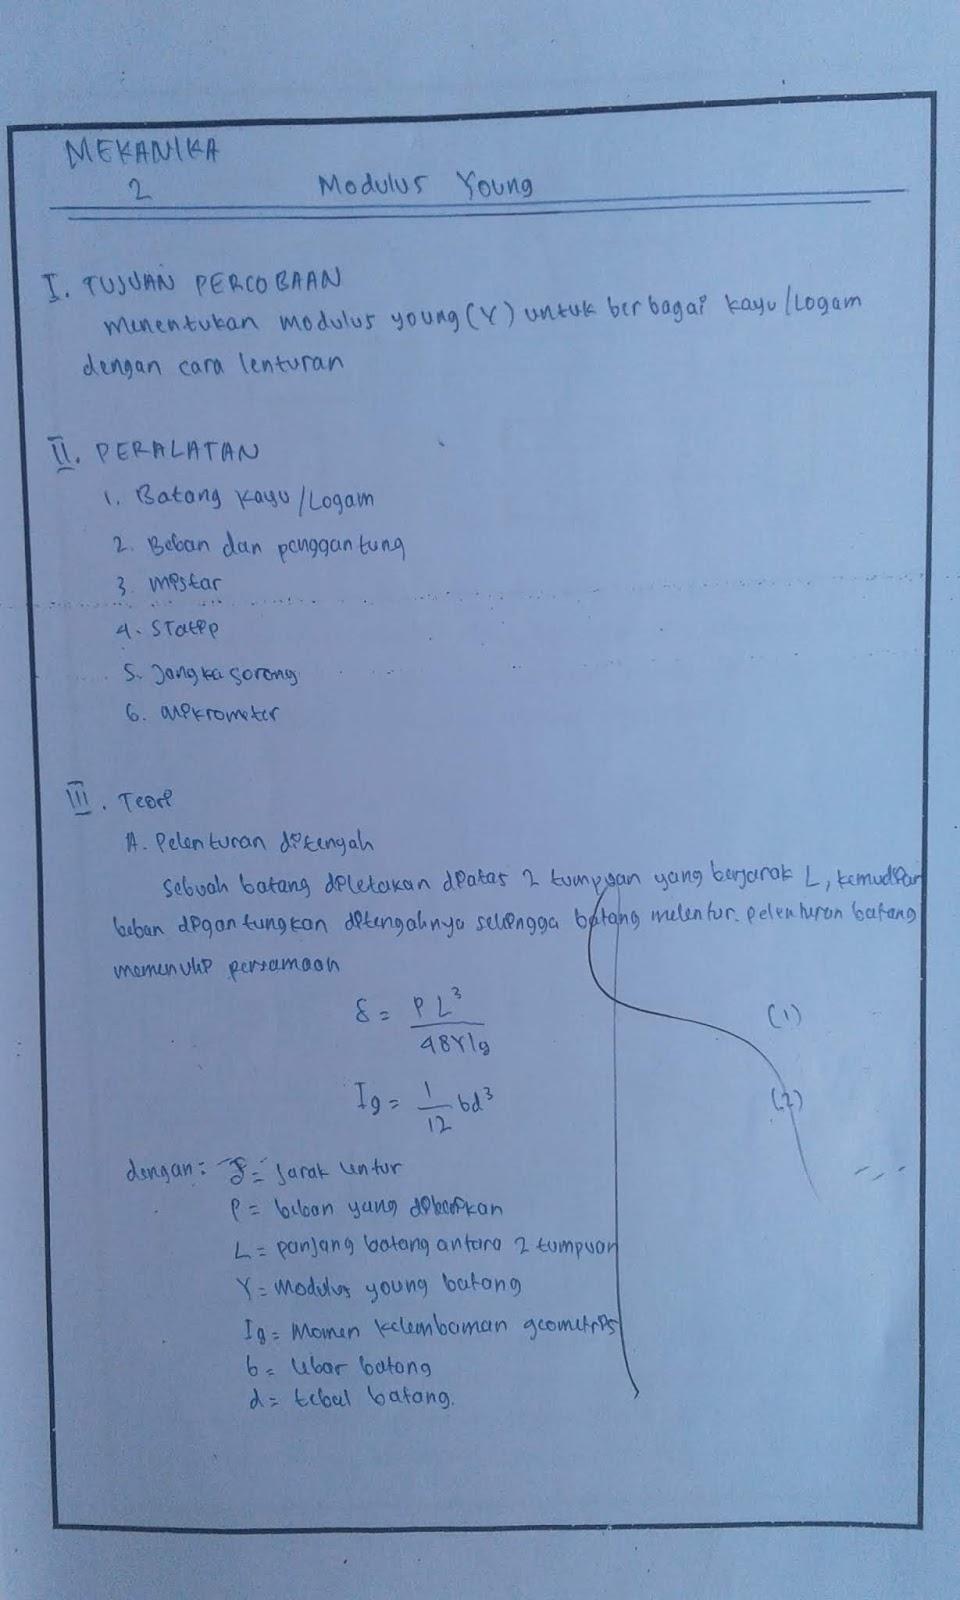 MEKANIKA
2 Modulus Young
I. TUJUAN PERCOBAAN
Menentukan modulus young (Y) untuk berbagai kayu/Logam
dengan cara lenturan
II. PERALATAN
1. Batang kayu/Logam
2. Beban dan penggantung
3. mistar
4. Statip
5. Jangka sorong
6. mikrometer
III. Teori
A. Pelenturan ditengah
Sebuah batang diletakan diatas 2 tumpuan yang berjarak L, kemudian
beban digantungkan ditengahnya sehingga batang melentur. pelenturan batang
memenuhi persamaan
δ = PL³/48YIg (1)
Ig = 1/12 bd³ (2)
dengan: δ = Jarak lentur
P = beban yang diberikan
L = panjang batang antara 2 tumpuan
Y = Modulus young batang
Ig = Momen kelembaman geometris
b = lebar batang
d = tebal batang.